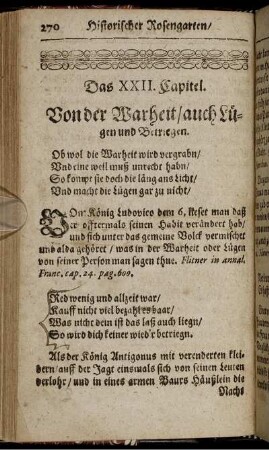 270 Historischer Rosengarten/
Das XXII. Capitel.
Von der Warheit/auch Lü-
gen und Betriegen.
Ob wol die Warheit wird vergrabn/
Vnd eine weil muß unrecht habn/
So kompt sie doch die läng ans Licht/
Vnd macht die Lügen gar zu nicht/
VOm König Ludovico dem 6, lieset man daß
er offtermals seinen Habit verändert hab/
und sich unter das gemeine Volck vermischet
und alda gehöret/ was in der Warheit oder Lügen
von seiner Person man sagen thue. Flitner in annal.
Franc, cap. 24. pag. 609.
Red wenig und allzeit war/
Kauff nicht viel bezahl es baar/
Was nicht dein ist das laß auch liegn/
So wird dich keiner wiedr betriegn.
Als der König Antigonus mit verenderten klei-
dern/auff der Jagt einsmals sich von seinen Leuten
verlohr/ und in eines armen Baurs Häußlein die
Nacht